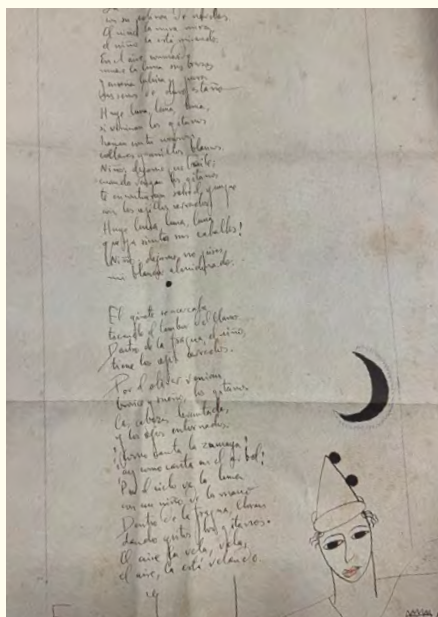 con su polisón de nardos.
El niño la mira mira
el niño la está mirando.
En el aire conmovido
mueve la luna sus brazos
y enseña lúbrica y pura
sus senos de duro estaño.
Huye luna, luna, luna,
si vinieran los gitanos
harían con tu
collares y anillos blancos.
Niño dejame que baile;
cuando vengan los gitanos
te encontrarán sobre el yunque
con los ojillos cerrados
Huye luna, luna, luna
que ya siento sus caballos!
Niño, dejame, no pises
mi blancor almidonado.
El jinete se acercaba
tocando el tambor del llano
Dentro de la fragua, el niño,
tiene los ojos cerrados.
Por el olivar venían
bronce y sueño, los gitanos
las cabezas levantadas,
y los ojos entornados.
¡Cómo canta la zumaya!
¡ay como canta en el árbol!
Por el cielo va la luna
con un niño de la mano
Dentro de la fragua, lloran
dando gritos, los gitanos.
El aire la vela, vela,
el aire, la está velando.